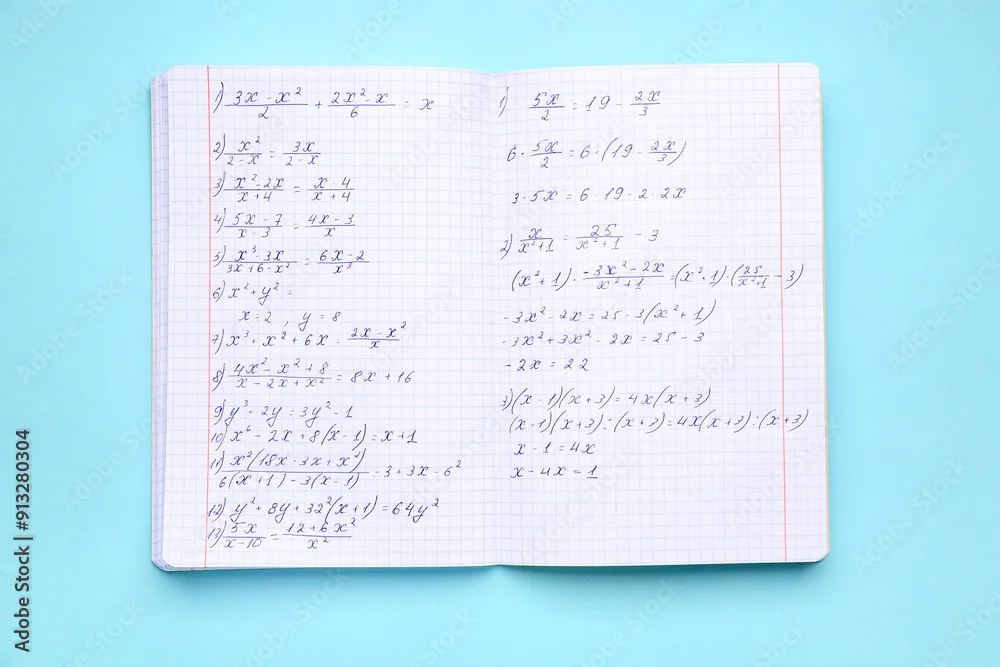 1) (3x - x²)/2 + (2x² - x)/6 = x
2) x²/(2 - x) = 3x/(2 - x)
3) (x² - 2x)/(x + 4) = (x - 4)/(x + 4)
4) (5x - 7)/(x - 3) = (4x - 3)/x
5) (x³ - 3x)/(3x + 6 - x²) = (6x - 2)/x³
6) x² + y² =
x = 2 , y = 8
7) x³ + x² + 6x = (2x - x²)/x
8) (4x² - x² + 8)/(x - 2x + x²) = 8x + 16
9) y³ + 2y = 3y² - 1
10) x⁶ - 2x + 8(x - 1) = x + 1
11) x²(18x - 3x + x²)/(6(x + 1) - 3(x - 1)) = 3 + 3x - 6²
12) y² + 8y + 32²(x + 1) = 64y²
13) 5x/(x - 10) = (12 + 6x²)/x²
1) 5x/2 = 19 - 2x/3
6 · 5x/2 = 6 · (19 - 2x/3)
3 · 5x = 6 · 19 - 2 · 2x
2) x/(x² + 1) = 25/(x² + 1) - 3
(x² + 1) · (-3x² - 2x)/(x² + 1) = (x² + 1) · (25/(x² + 1) - 3)
-3x² - 2x = 25 - 3(x² + 1)
-3x² + 3x² - 2x = 25 - 3
-2x = 22
3) (x - 1)(x + 3) = 4x(x + 3)
(x - 1)(x + 3) : (x + 3) = 4x(x + 3) : (x + 3)
x - 1 = 4x
x - 4x = 1
Adobe Stock | #913280304